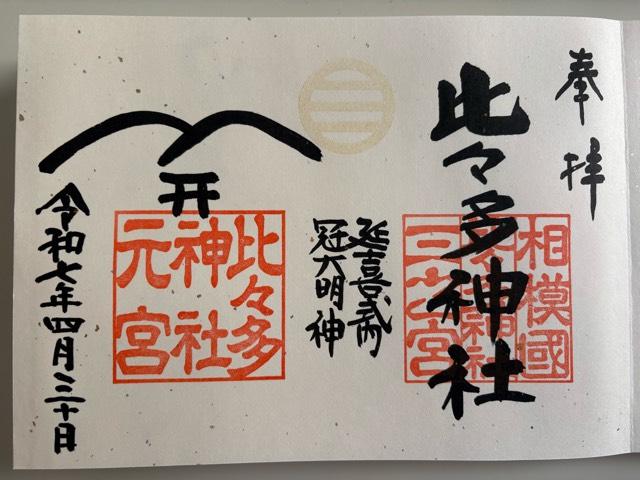 奉拝
比々多神社
相模國
三之宮
延喜式内
冠大明神
比々多
神社
元宮
令和七年四月三十日